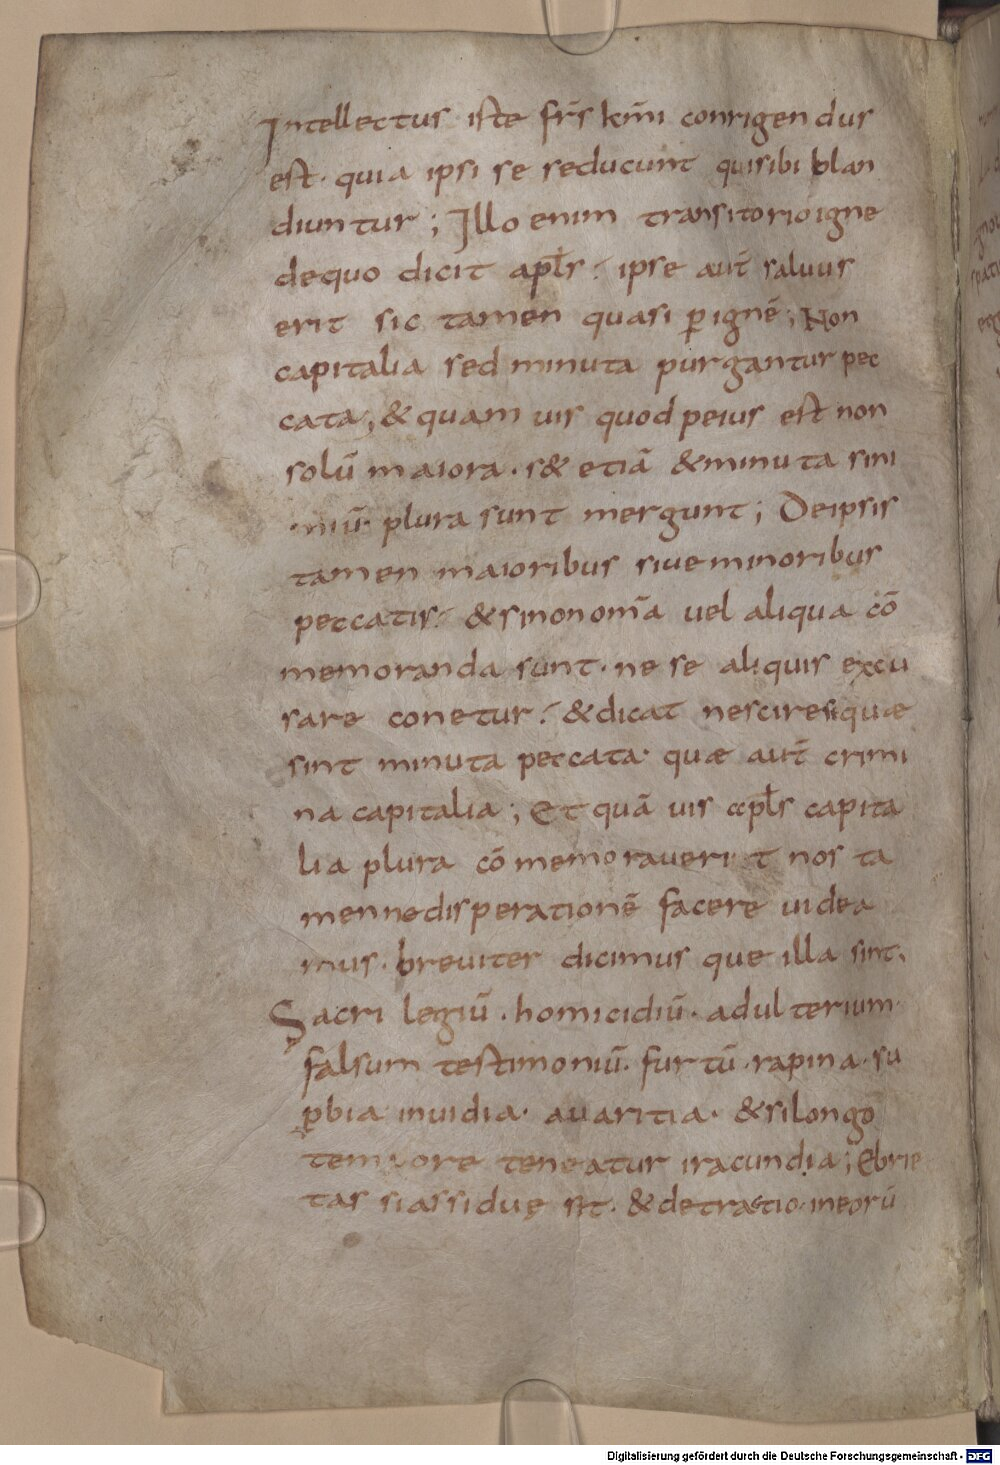 Intellectus iste fr̄s km̄i conrigendus
est· quia ipsi se seducunt quisibi blan
diuntur; Illo enim transitorioigne
dequo dicit apl̄s: ipse aut̄ saluus
erit sic tamen quasi ꝑignē; Non
capitalia sed minuta purgantur pec
cata; & quam uis quod peius est non
solū maiora· s& etiā &minuta sini
miū· plura sunt mergunt; Deipsis
tamen maioribus siue minoribus
peccatis: &sinonom̄a uel aliqua cō
memoranda sunt· ne se aliquis excu
sare conetur: &dicat nescire quae
sint minuta peccata· quae aut̄ crimi
na capitalia; Et quā uis apl̄s capita
lia plura cō memorauerit nos ta
men nedisperationē facere uidea
mus· breuiter dicimus que illa sint·
Sacri legiū· homicidiū· adulterium·
falsum testimoniū· furtū· rapina· su
ꝑbia inuidia· auaritia· &silongo
tempore teneatur iracundia; Ebrie
tas siassidue sit· &detractio· ineorū
Digitalisierung gefördert durch die Deutsche Forschungsgemeinschaft - DFG